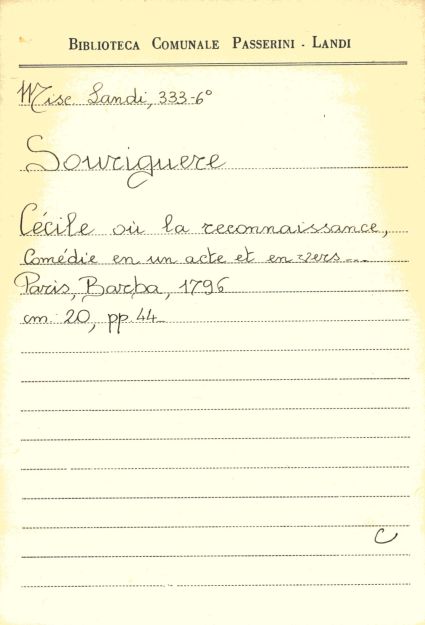 BIBLIOTECA COMUNALE PASSERINI - LANDI
Misc. Landi, 333-6°
Souriguere
Cécile où la reconnaissance,
Comédie en un acte et en vers...
Paris, Barba, 1796
cm. 20, pp. 44
C